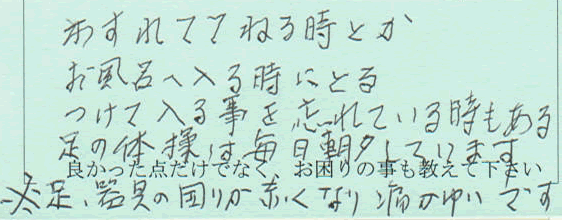 わすれててねる時とか
お風呂へ入る時にとる
つけて入る事を忘れている時もある
足の体操は毎日朝夕しています
良かった点だけでなく、お困りの事も教えて下さい
※足、器具の回りが赤くなり痛がゆいです